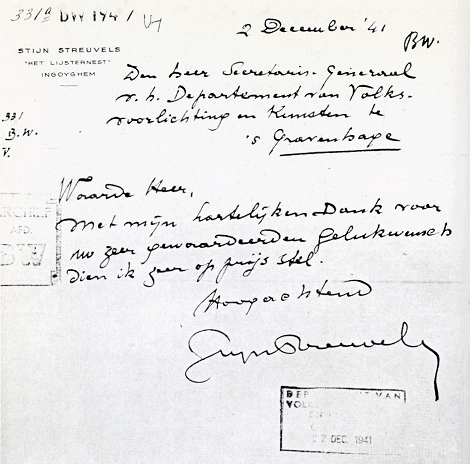 331a DW 1941
STIJN STREUVELS
"HET LIJSTERNEST"
INGOYGHEM
2 December '41
B.W.
Den heer Secretaris-Generaal
v. h. Departement van Volks-
voorlichting en Kunsten te
's Gravenhage
331
B.W.
V.
Waarde Heer,
Met mijn hartelijken Dank voor
uw zeer gewaardeerden gelukwensch
dien ik zeer op prijs stel.
Hoogachtend
Stijn Streuvels
ARCHIEF
AFD.
BW
VAN
VOLK
22 DEC. 1941